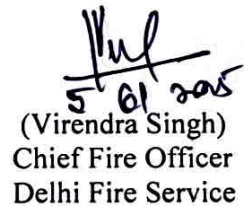 5 01 2015
(Virendra Singh)
Chief Fire Officer
Delhi Fire Service